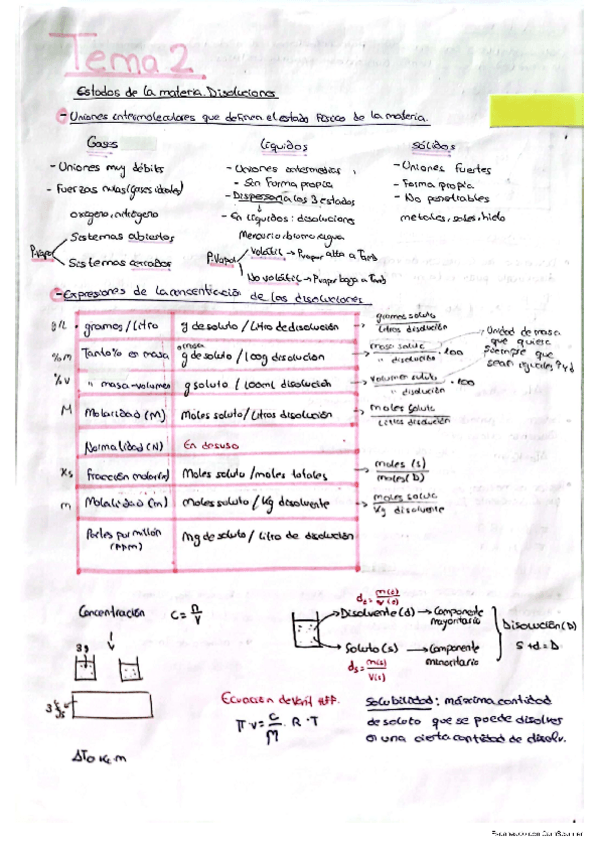 Tema 2
Estados de la materia. Disoluciones
- Uniones intermoleculares que definen el estado físico de la materia.
Gases
- Uniones muy débiles
- Fuerzas nulas (gases ideales)
oxígeno, nitrógeno
P.vapor
Sistemas abiertos
Sistemas cerrados
Líquidos
- Uniones intermedias
- Sin forma propia
- Dispersona los 3 estados
- En líquidos: disoluciones
Mercurio, bromo, agua
P.Vapor
Volátil → Pvapor alta a Tamb
No volátil → Pvapor baja a Tamb
Sólidos
- Uniones fuertes
- Forma propia
- No penetrables
metales, sales, hielo
- Expresiones de la concentración de las disoluciones
g/L · gramos/Litro g de soluto / Litro de disolución → gramos soluto / Litros disolución
%m Tanto % en masa masa g de soluto / 100g disolución → masa soluto / " disolución · 100
%v " masa-volumen g soluto / 100ml disolución → volumen soluto / " disolución · 100
Unidad de masa
que quiera
siempre que
sean iguales
M Molaridad (M) Moles soluto / Litros disolución → moles soluto / Litros disolución
Normalidad (N) En desuso
Xs Fracción molar (n) Moles soluto / moles totales → moles (s) / moles (D)
m Molalidad (m) moles soluto / Kg disolvente → moles soluto / Kg disolvente
Partes por millón (ppm) mg de soluto / litro de disolución
Concentración C = n/V
3g
ΔT
d = m(s)/V(s)
Disolvente (d) → Componente mayoritario
Soluto (s) → Componente minoritario
ds = m(s)/V(s)
Disolución (D)
S + d = D
Ecuación de Van't Hoff.
R · T
Solubilidad: máxima cantidad
de soluto que se puede disolver
en una cierta cantidad de disolv.
Escaneado con CamScanner